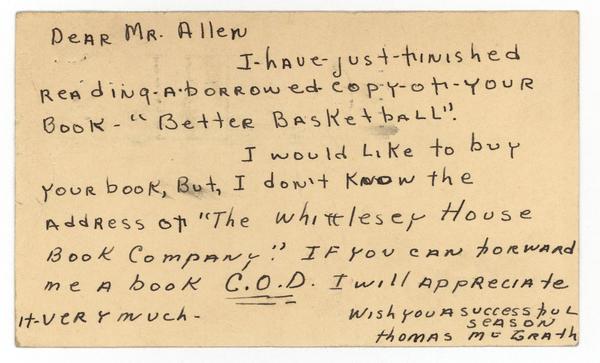 Dear Mr. Allen
I-have-just-finished
reading-a-borrowed-copy-of-your
Book-"Better Basketball".
I would like to buy
your book, But, I don't know the
address of "The Whittlesey House
Book Company." If you can forward
me a book C.O.D. I will appreciate
it-very much-
Wish you a successful
season
Thomas McGrath